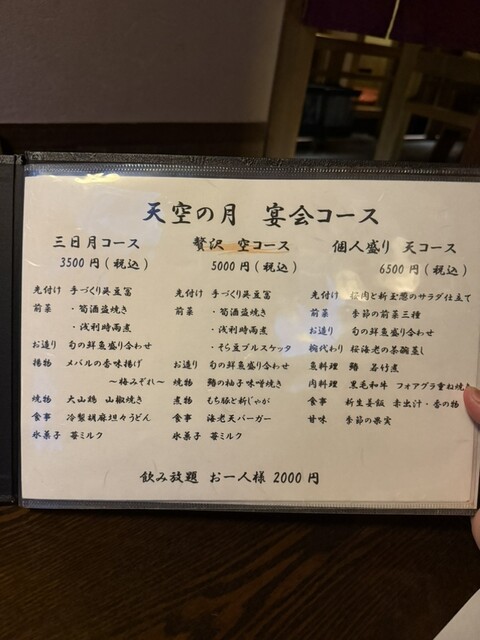 天空の月 宴会コース
三日月コース
3500円(税込)
先付け 手づくり呉豆冨
前菜 ・筍酒盗焼き
・浅利時雨煮
お造り 旬の鮮魚盛り合わせ
揚物 メバルの香味揚げ
〜梅みぞれ〜
焼物 大山鶏 山椒焼き
食事 冷製胡麻坦々うどん
氷菓子 苺ミルク
贅沢 空コース
5000円(税込)
先付け 手づくり呉豆冨
前菜 ・筍酒盗焼き
・浅利時雨煮
・そら豆ブルスケッタ
お造り 旬の鮮魚盛り合わせ
焼物 鰆の柚子味噌焼き
煮物 もち豚と新じゃが
食事 海老天バーガー
氷菓子 苺ミルク
個人盛り 天コース
6500円(税込)
先付け 桜肉と新玉葱のサラダ仕立て
前菜 季節の前菜三種
お造り 旬の鮮魚盛り合わせ
椀代わり 桜海老の茶碗蒸し
魚料理 若竹煮
肉料理 黒毛和牛 フォアグラ重ね焼き
食事 新生姜飯 赤出汁・香の物
甘味 季節の果実
飲み放題 お一人様 2000円